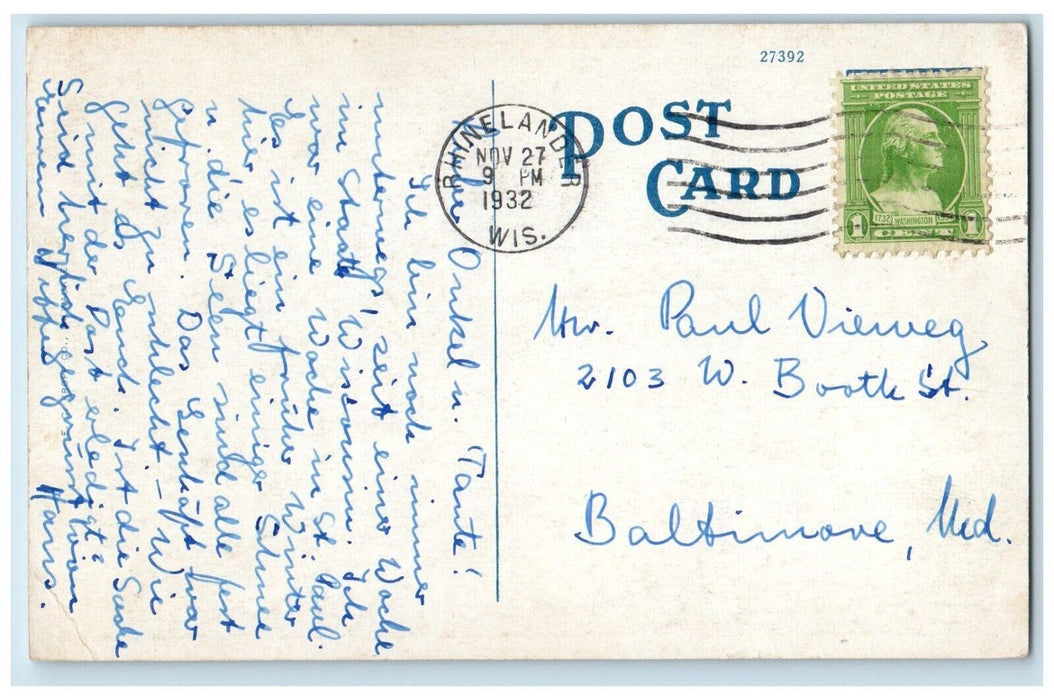 27392
POST
CARD
RHINELANDER
NOV 27
9 PM
1932
WIS.
UNITED STATES
POSTAGE
1732 WASHINGTON
1 CENT 1
Mr. Paul Vieweg
2103 W. Booth St.
Baltimore, Md.
Onkel u. Tante!
Ich bin noch immer
unterwegs, seit einer Woche
im Staate Wisconsin. Ich
war eine Woche in St. Paul.
Es ist ein früher Winter
hier, es liegt einiger Schnee
u. die Seen sind alle fest
gefroren. Das Geschäft war
nicht zu schlecht – Wie
geht es Euch. Ist die Sache
mit der Post erledigt?
Seid herzlich gegrüsst von
Eurem Neffen Hans.